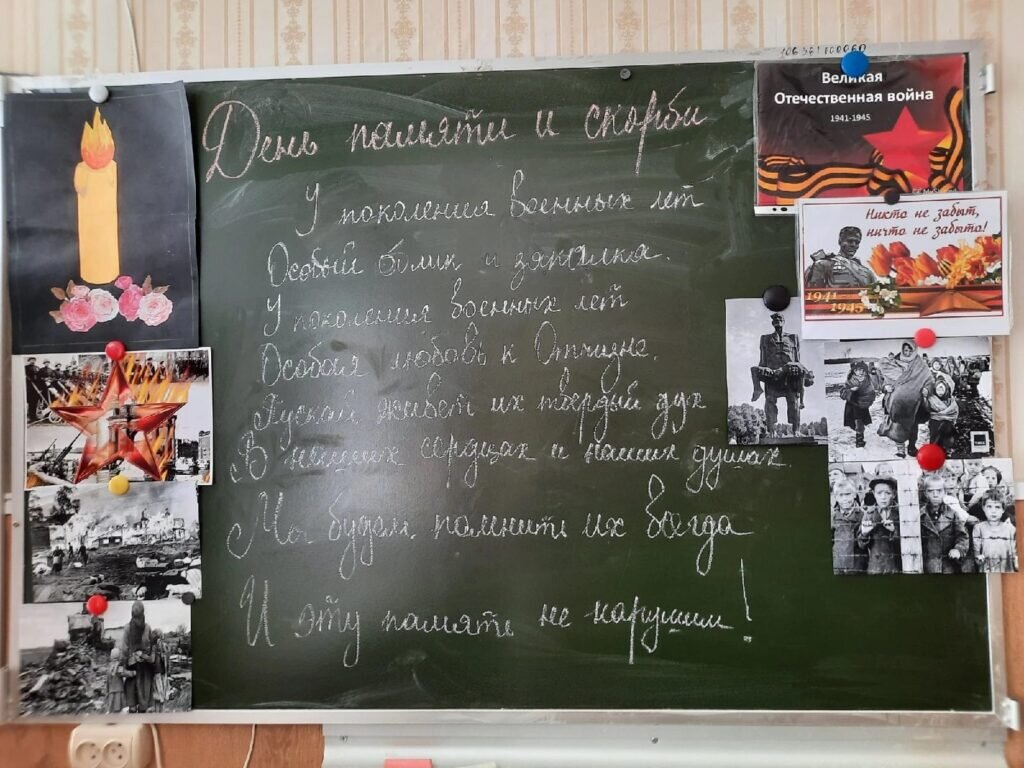 День памяти и скорби
У поколения военных лет
Особый облик и закалка.
У поколения военных лет
Особая любовь к Отчизне.
Пускай живет их твердый дух
В наших сердцах и наших душах.
Мы будем помнить их всегда
И эту память не нарушим!
Великая
Отечественная война
1941-1945
Никто не забыт,
ничто не забыто!
1941
1945